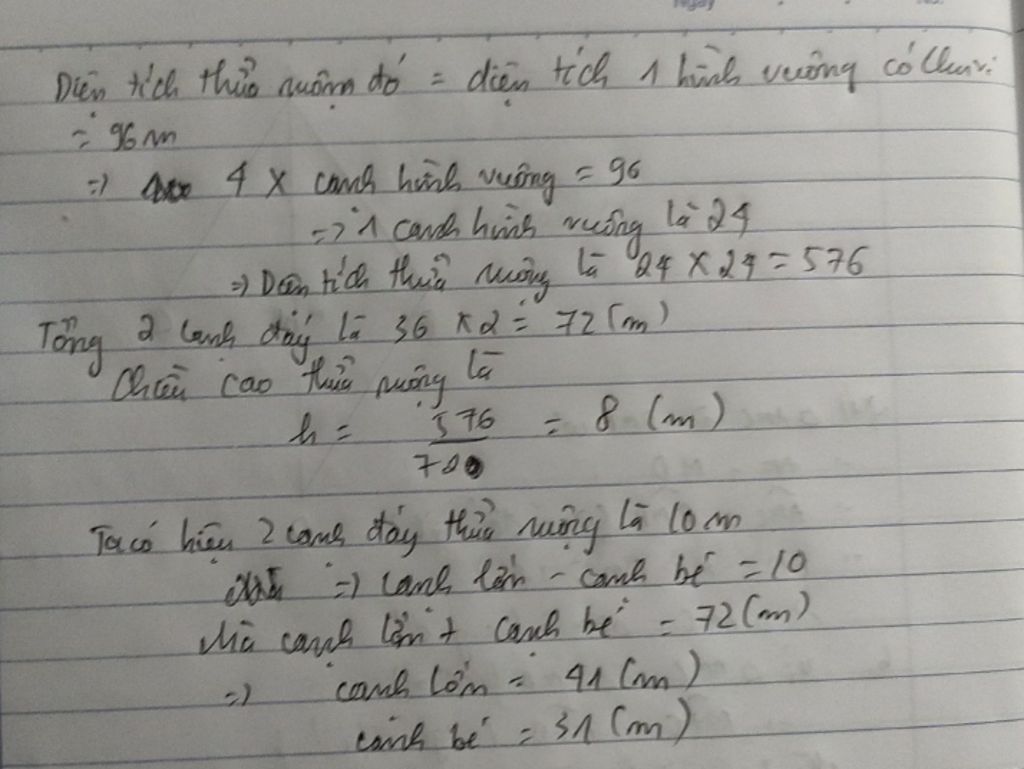 Diện tích thửa ruộng đó = diện tích 1 hình vuông có chu vi
= 96 m
=> 4 x cạnh hình vuông = 96
=> 1 cạnh hình vuông là 24
=> Diện tích thửa ruộng là 24 x 24 = 576
Tổng 2 cạnh đáy là 36 x 2 = 72 (m)
Chiều cao thửa ruộng là
h = 576 / 72 = 8 (m)
Ta có hiệu 2 cạnh đáy thửa ruộng là 10 m
=> cạnh lớn - cạnh bé = 10
Mà cạnh lớn + cạnh bé = 72 (m)
=> cạnh lớn = 41 (m)
cạnh bé = 31 (m)